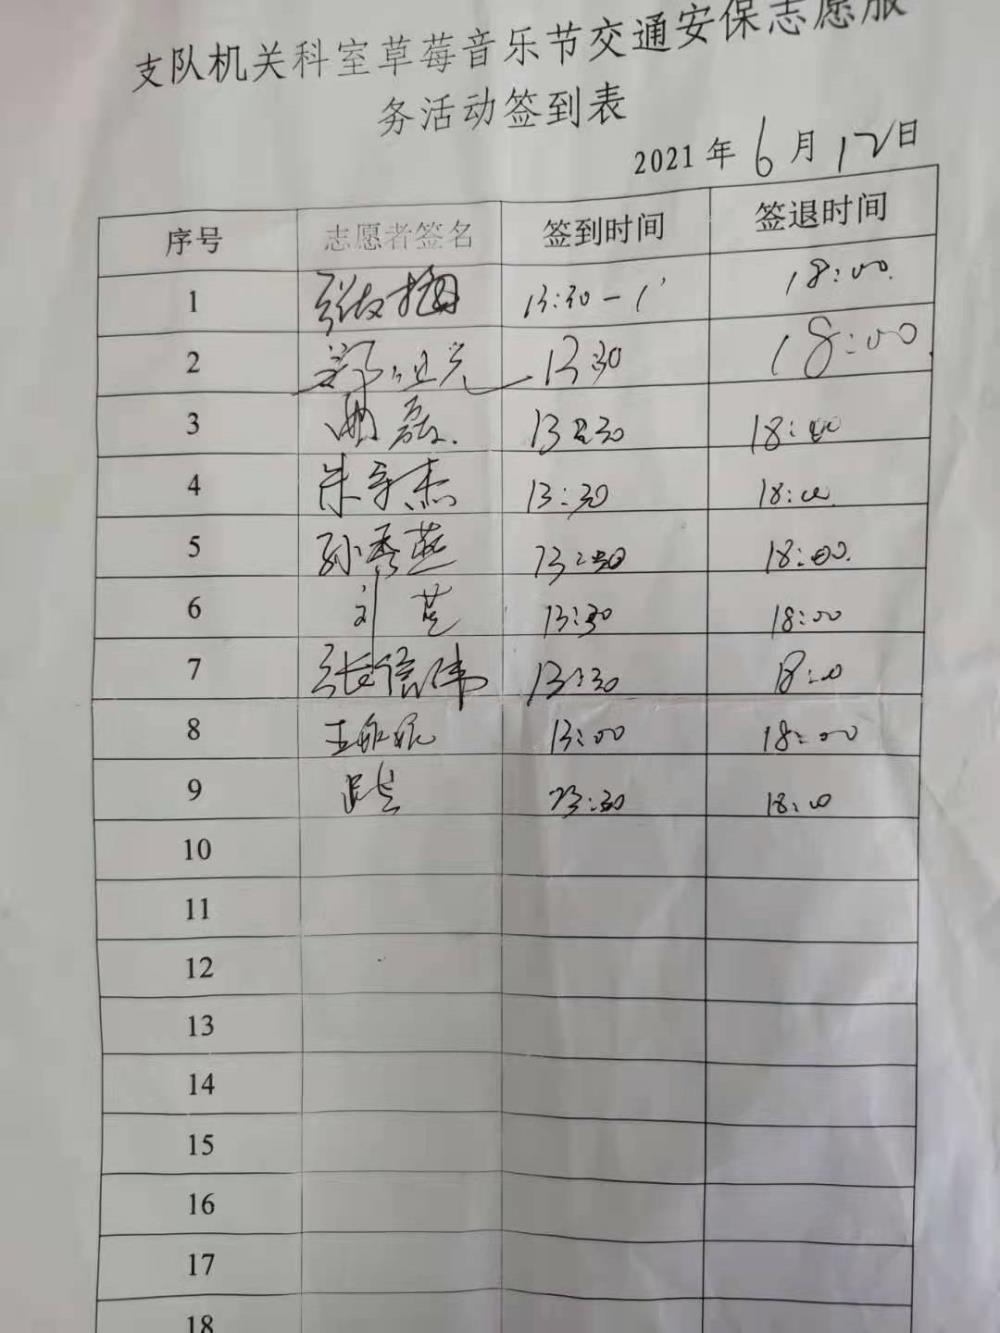 支队机关科室草莓音乐节交通安保志愿服
务活动签到表
2021 年 6 月 12 日
序号 志愿者签名 签到时间 签退时间
1 13:30 18:00
2 13 30 18:00
3 磊 13:30 18:00
4 朱宇杰 13:30 18:00
5 孙秀燕 13:30 18:00
6 刘 13:30 18:00
7 张信伟 13:30 18:00
8 王 13:00 18:00
9 13:30 18:00
10
11
12
13
14
15
16
17
18